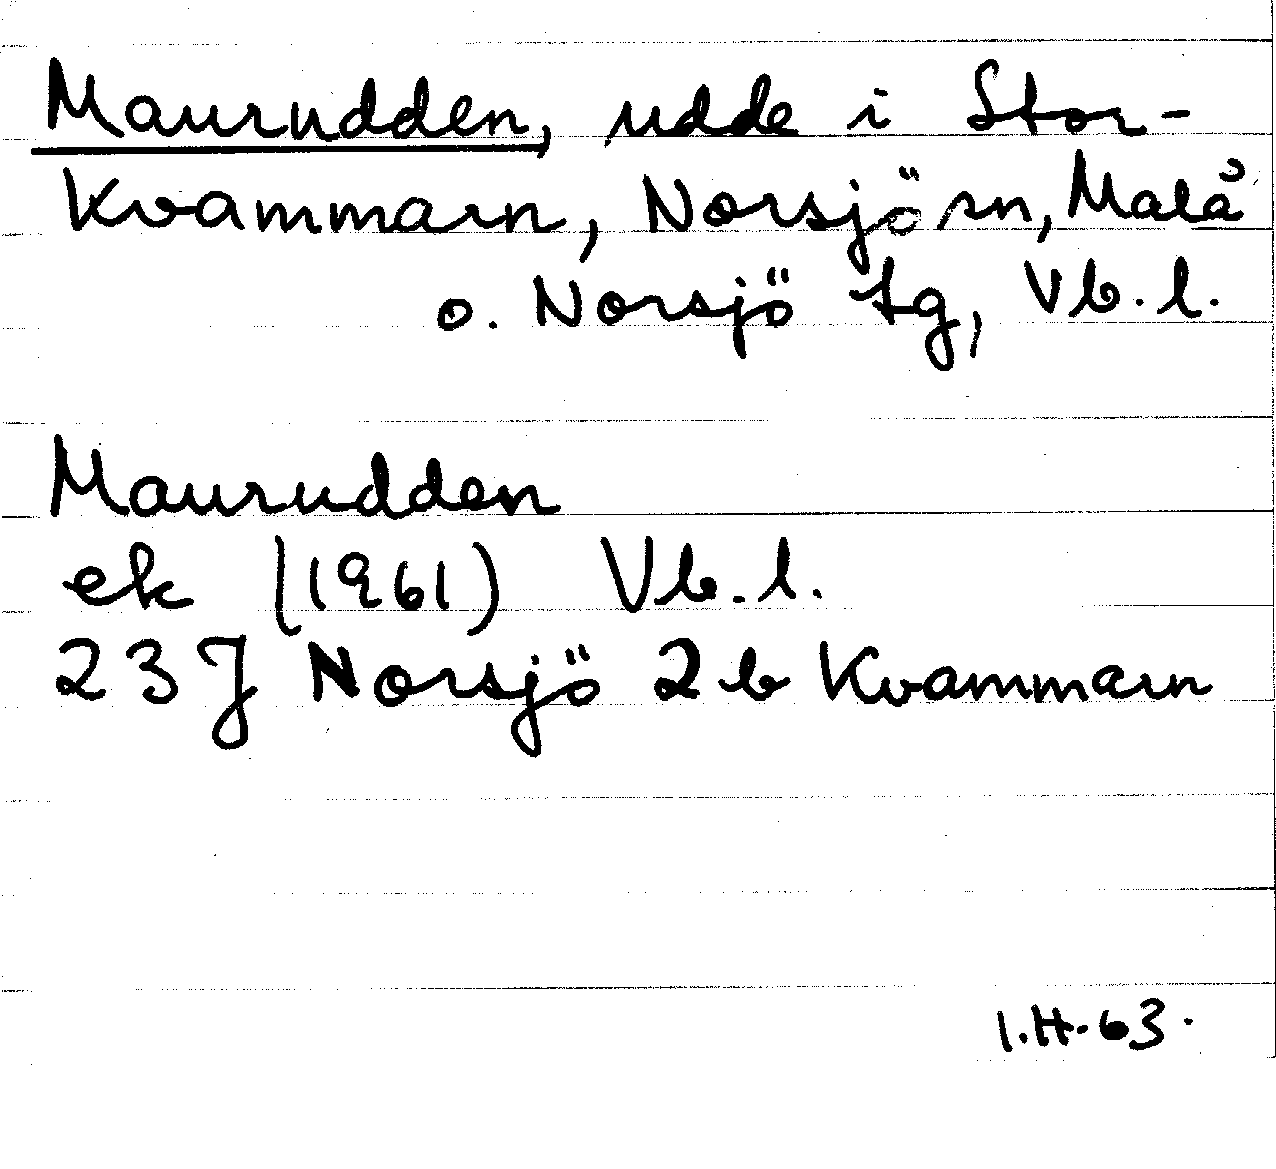 Maurudden, udde i Stor-
Kvammarn, Norsjö sn, Malå
o. Norsjö tg, Vb. l.
Maurudden
ek (1961) Vb. l.
23J Norsjö 2b Kvammarn
I.H. 63.